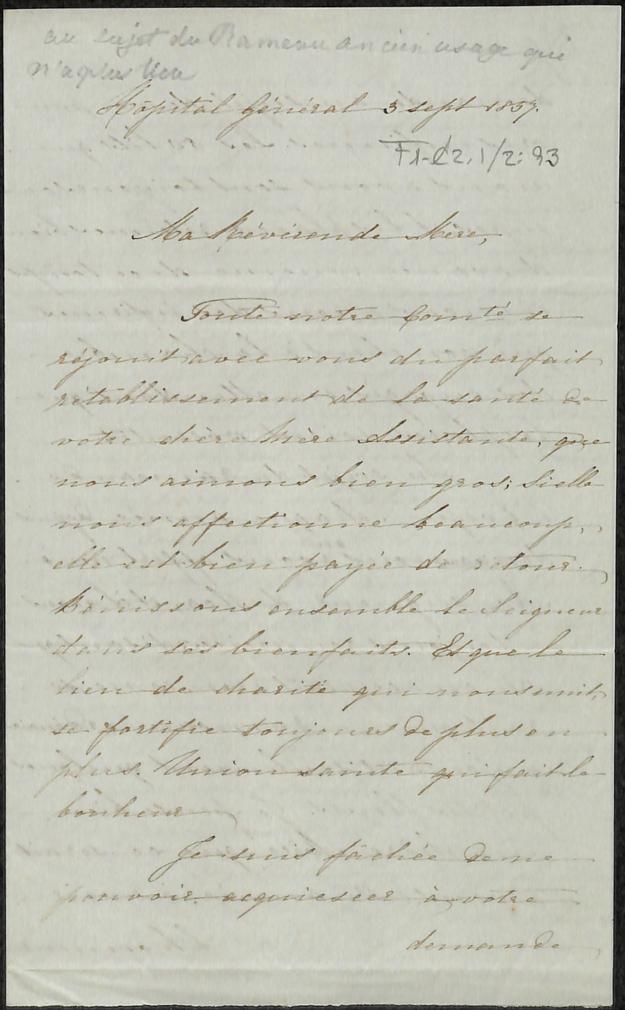 au sujet du Rameau ancien usage qui
n'a plus lieu
Hôpital Général 3 sept 1857.
F1-C2,1/2:93
Ma Révérende Mère,
Toute notre Comté se
réjouit avec vous du parfait
rétablissement de la santé de
votre chère Mère Assistante, que
nous aimons bien gros; si elle
nous affectionne beaucoup,
elle est bien payée de retour.
Bénissons ensemble le Seigneur
dans ses bienfaits. Et que le
lien de charité qui nous unit,
se fortifie toujours de plus en
plus. Union sainte qui fait le
bonheur
Je suis fâchée de ne
pouvoir acquiescer à votre
demande